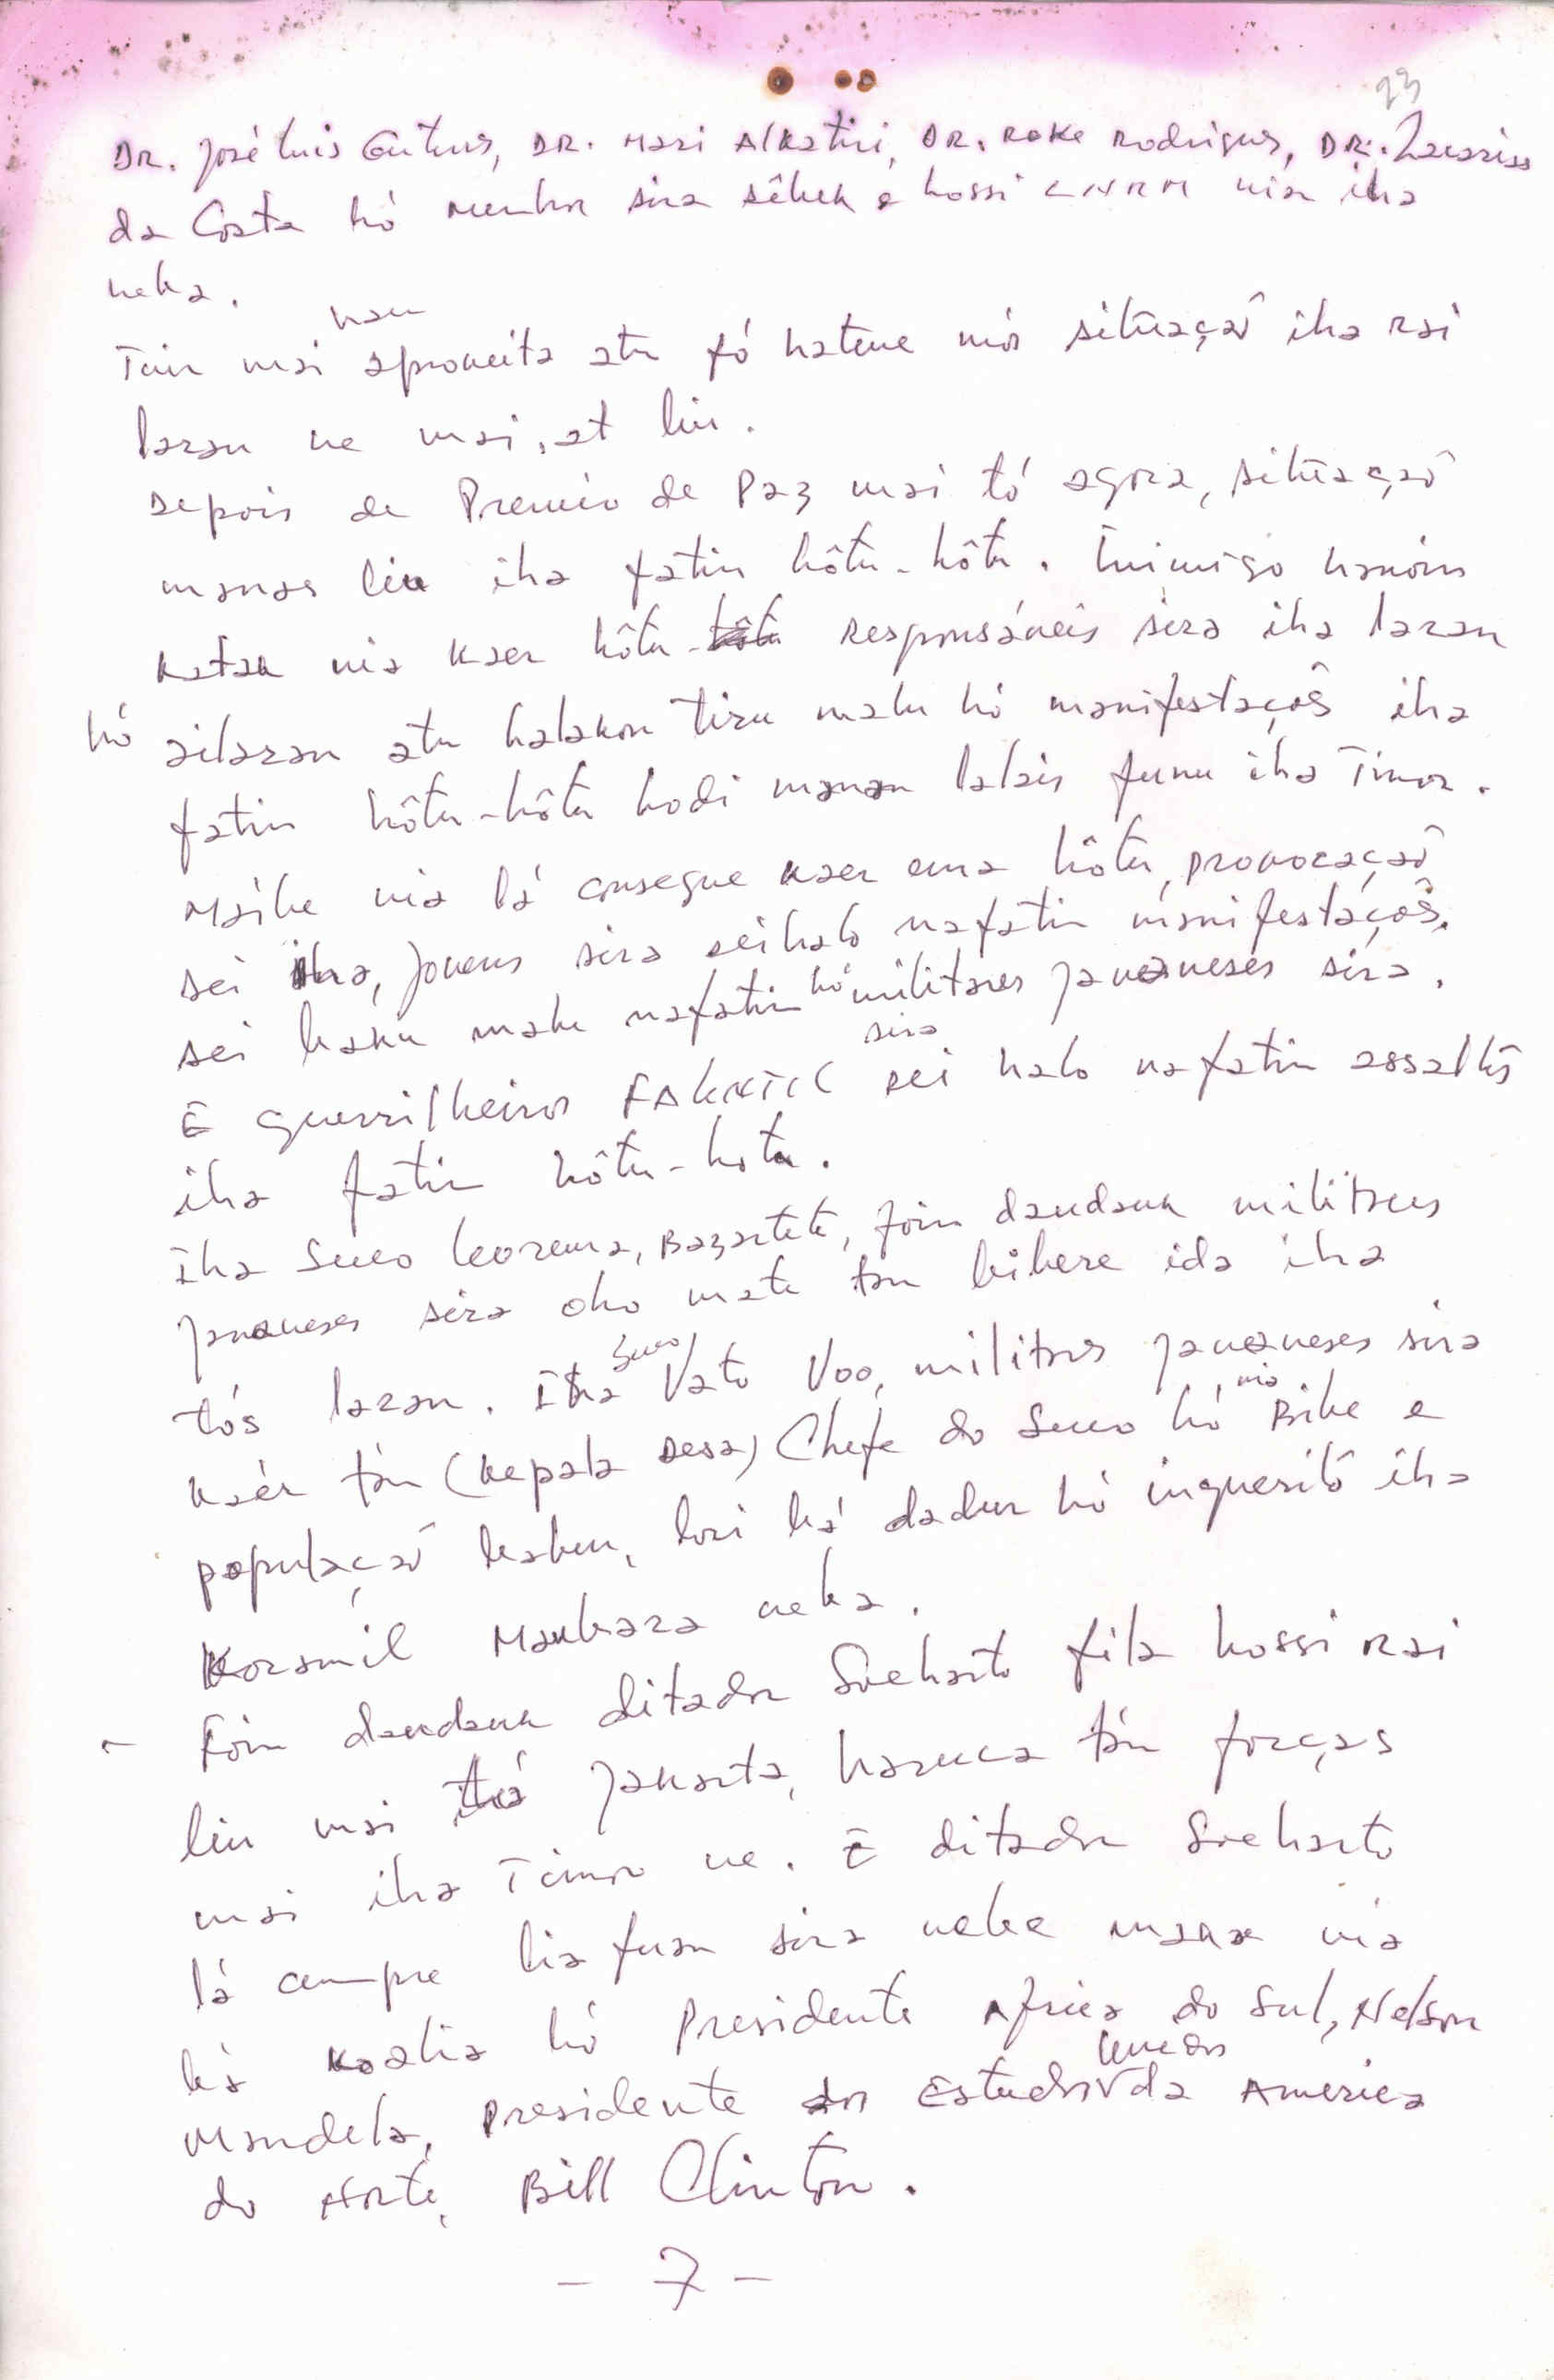 23
DR. José Luis Guterres, DR. Mari Alkatiri, DR. Roke Rodrigues, DR. Zacarias
da Costa hó membro sira sêluk e hossi CNRM nian iha
neba.
Tuir mai hau aproveita atu fó hatene mós situaçaõ iha rai
laran ne mai, at liu.
Depois de Premio de Paz mai tó agora, situaçaõ
manas liu iha fatin hôtu-hôtu. Inimigo hanoin
katak nia kaer hôtu responsáveis sira iha laran
hó ailaran atu halakon tiru malu hó manifestaçoẽs iha
fatin hôtu-hôtu hodi manan lalais funu iha Timor.
Maibe nia lá consegue kaer ema hôtu, provocaçaõ
sei iha, jovens sira sei halo nafatin manifestaçoẽs,
sei baku malu nafatin hó militares javaneses sira.
E guerrilheiros FALINTIL sira sei halo nafatin assaltos
iha fatin hôtu-hotu.
Iha Suco Leorema, Bazartete, foin daudauk militares
javaneses sira oho mate tan bibere ida iha
tós laran. Iha Suco Vato Voo, militares javaneses sira
kaér tán (kepala desa) Chefe do Suco hó nia Bibe e
populaçaõ balun, lori bá dadur hó inqueritó iha
Koramil Maubara neba.
- Foin daudauk ditador Soeharto fila hossi rai
liur mai Jakarta, haruca tán forças
mai iha Timor ne. E ditador Soeharto
lá cumpre liafuan sira nebe maka nia
bá koalia hó Presidente Africa do Sul, Nelson
Mandela, Presidente dos Estados Unidos da America
do Norte, Bill Clinton.
- 7 -